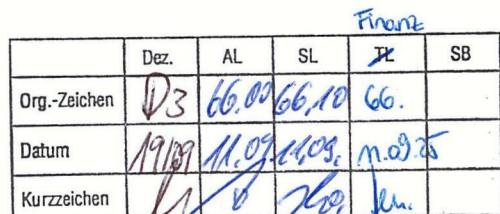 Finanz
Dez. AL SL TL SB
Org.-Zeichen D3 66.00 66.10 66.
Datum 19/09 11.09. 11.09. 11.09.25
Kurzzeichen